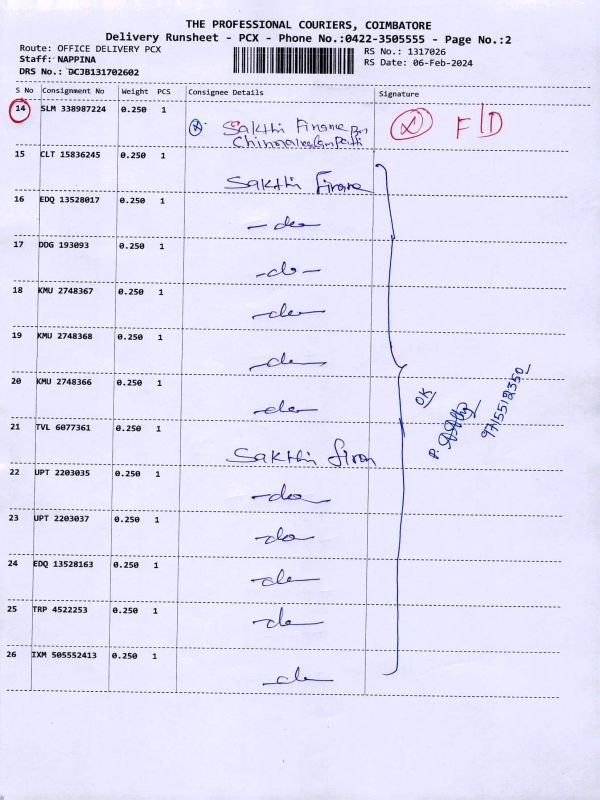 THE PROFESSIONAL COURIERS, COIMBATORE
Delivery Runsheet - PCX - Phone No.:0422-3505555 - Page No.:2
Route: OFFICE DELIVERY PCX RS No.: 1317026
Staff: NAPPINA RS Date: 06-Feb-2024
DRS No.: DCJB131702602
S No Consignment No Weight PCS Consignee Details Signature
14 SLM 338987224 0.250 1
Sakthi Finance
F/D
15 CLT 15836245 0.250 1
Sakthi Finance
16 EDQ 13528017 0.250 1
-do-
17 DDG 193093 0.250 1
-do-
18 KMU 2748367 0.250 1
-do-
19 KMU 2748368 0.250 1
-do-
20 KMU 2748366 0.250 1
-do-
OK
9715512350
21 TVL 6077361 0.250 1
Sakthi Finan
22 UPT 2203035 0.250 1
-do-
23 UPT 2203037 0.250 1
-do-
24 EDQ 13528163 0.250 1
-do-
25 TRP 4522253 0.250 1
-do-
26 IXM 505552413 0.250 1
-do-